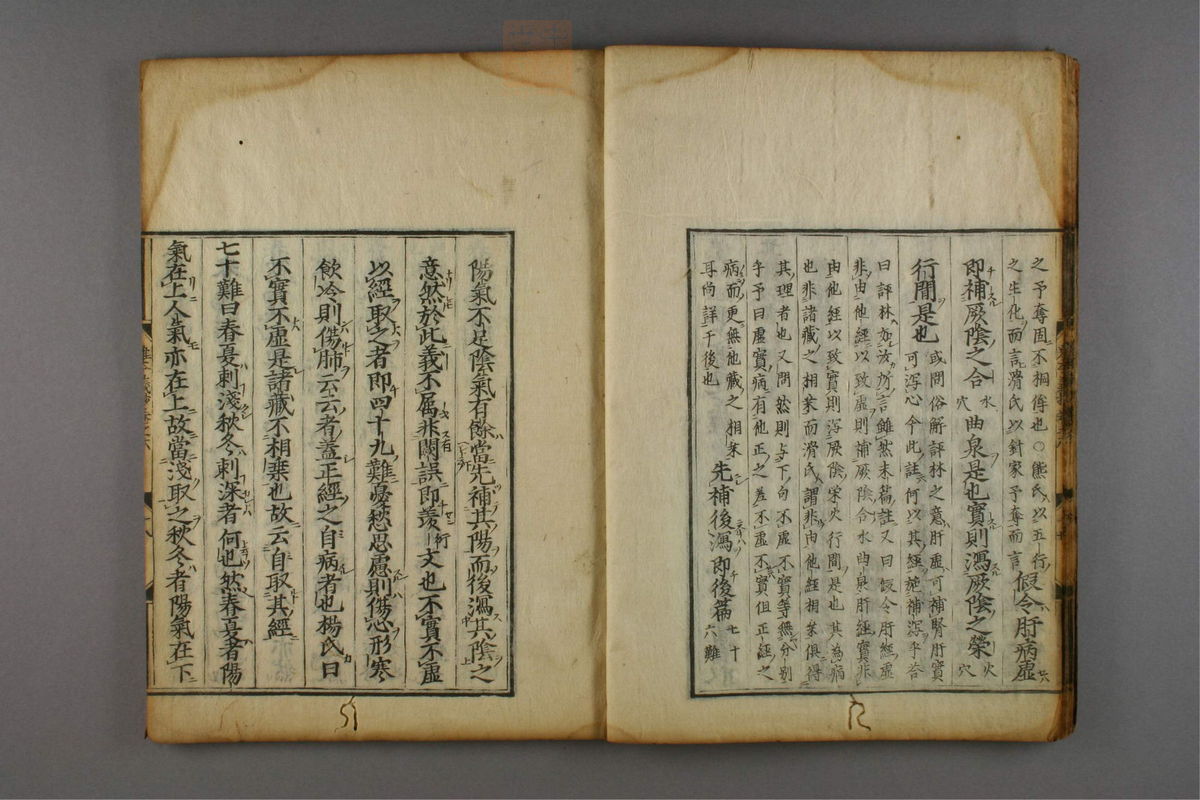 之予奪固不相侔也○熊氏以五行
之生化而言滑氏以針家予奪而言
假令肝病虛
即補厥陰之合
水穴
曲泉是也實則瀉厥陰之榮
火穴
行間是也
或問俗解評林之意肝虛可補腎肝實
可瀉心今此註何以其經施補瀉乎答
曰評林如汝所言雖然末篇註又曰假令肝經虛
非由他經以致虛則補厥陰合水曲泉肝經實非
由他經以致實則瀉厥陰滎火行間是也其為病
也非諸藏之相乘而滑氏謂非由他經相乘俱得
其理者也又問然則与下句不虛不實等無分別
乎予曰虛實病有他正之差不虛不實但正經之
病而更無他藏之相乘
耳尚詳于後也
先補後瀉即後篇
七十
六難
陽氣不足陰氣有餘當先補其陽而後瀉其陰之
意然於此義不属非闕誤即羨文也不實不虛
以經取之者即四十九難憂愁思慮則傷心形寒
飲冷則傷肺云云者蓋正經之自病者也楊氏曰
不實不虛是諸藏不相乘也故云自取其經
七十難曰春夏刺淺秋冬刺深者何也然春夏者陽
氣在上人氣亦在上故當淺取之秋冬者陽氣在下